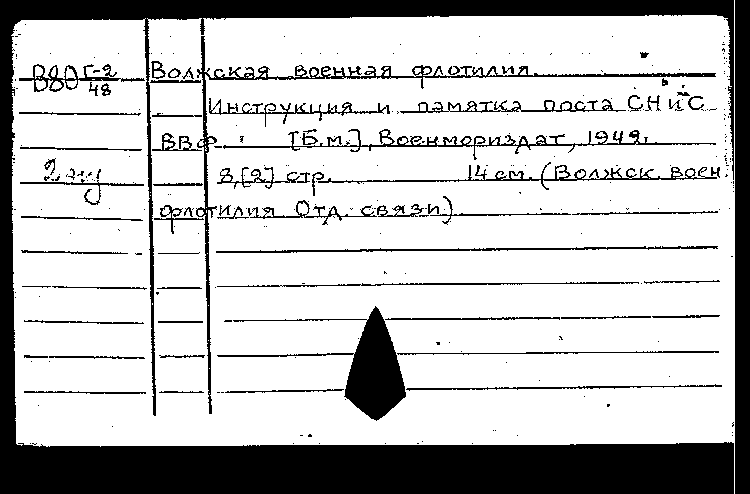 В80 Г-2/48 Волжская военная флотилия.
Инструкция и памятка поста СНиС
ВВФ. [Б.м.], Военмориздат, 1942.
2 экз 8,[2] стр. 14 см. (Волжск. воен.
флотилия Отд. связи)